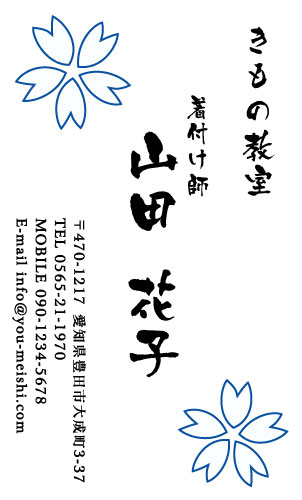 きもの教室
着付け師
山田 花子
〒470-1217 愛知県豊田市大成町3-37
TEL 0565-21-1970
MOBILE 090-1234-5678
E-mail info@you-meishi.com